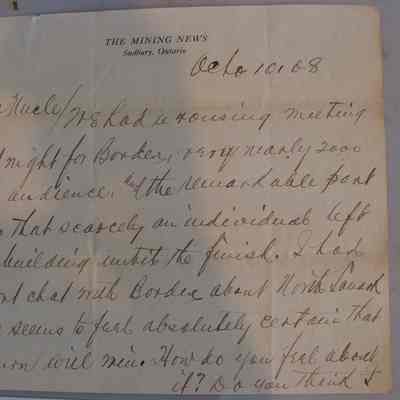 THE MINING NEWS
Sudbury, Ontario
Octo 10, 08
We had a rousing meeting
night for Borden, very nearly 2000
audience. the remarkable part
that scarcely an individual left
building until the finish. I had
chat with Borden about North
seems to feel absolutely certain that
will win. How do you feel about
it? Do you think I